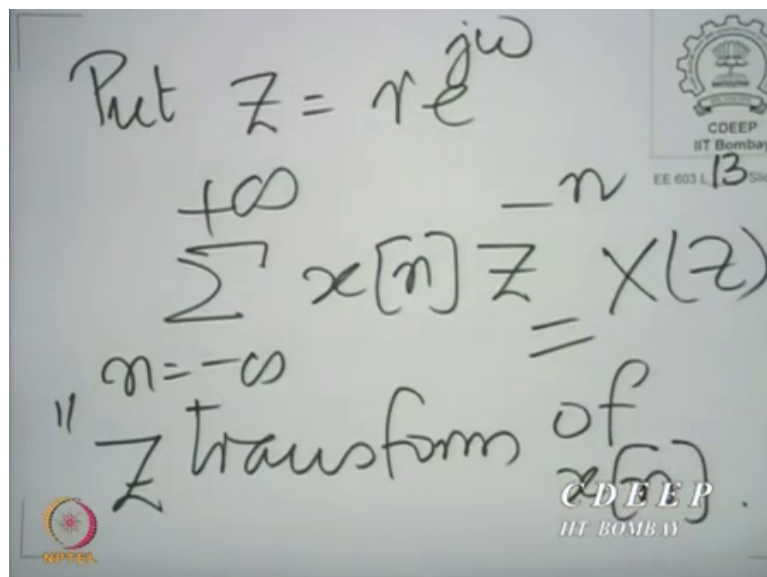 Put Z = re^jω
CDEEP
IIT Bombay
EE 603 L 13 Slid
+∞
Σ x[n] Z^-n = X(Z)
n=-∞
" Z transform of
x[n].
CDEEP
IIT BOMBAY
NPTEL